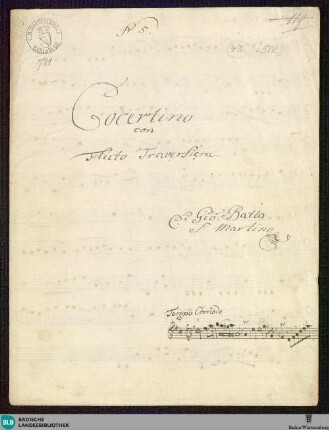 N 5.
781
Cocertino
con
Flauto Traversiera
Di Gio: Batta
S Martino
Tempo Comodo
BLB BADISCHE
LANDESBIBLIOTHEK
Baden-Württemberg